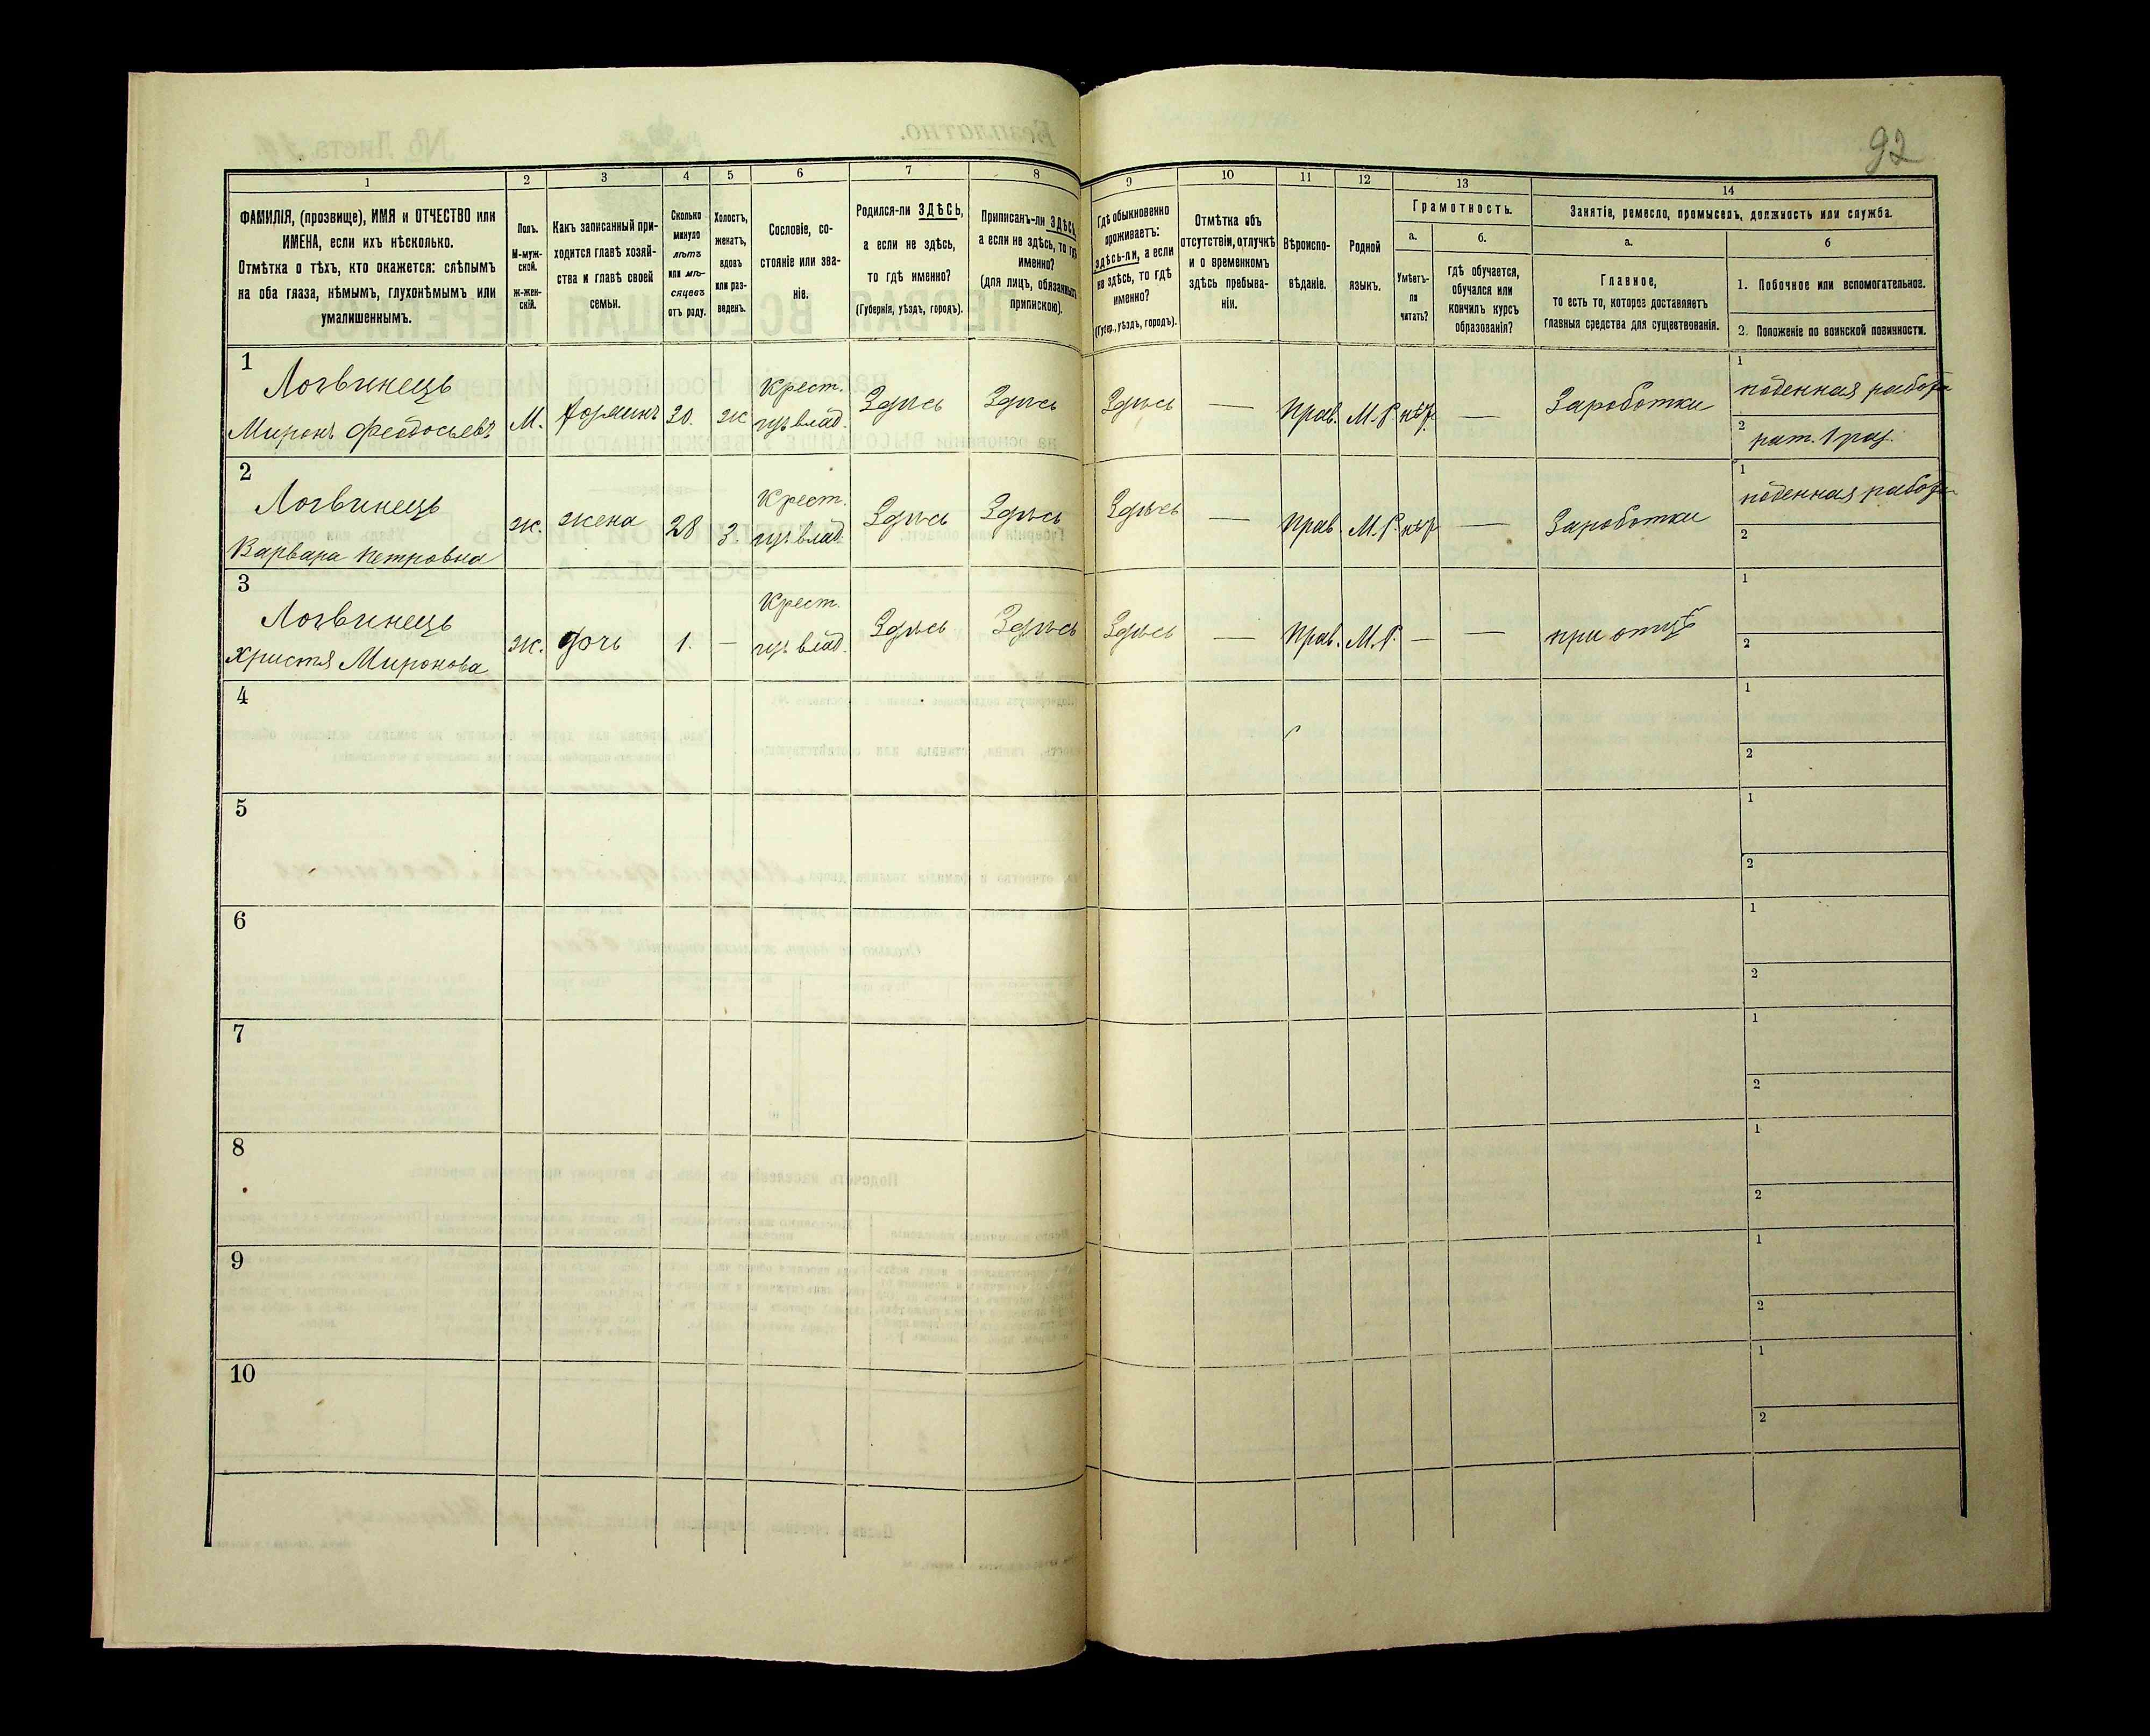 92
1 2 3 4 5 6 7 8 9 10 11 12 13 14
ФАМИЛІЯ, (прозвище), ИМЯ и ОТЧЕСТВО или
ИМЕНА, если ихъ нѣсколько.
Отмѣтка о тѣхъ, кто окажется: слѣпымъ
на оба глаза, нѣмымъ, глухонѣмымъ или
умалишеннымъ.
Полъ.
М-муж-
ской.
Ж-жен-
скій.
Какъ записанный при-
ходится главѣ хозяй-
ства и главѣ своей
семьи.
Сколько
минуло
лѣтъ
или мѣ-
сяцевъ
отъ роду.
Холостъ,
женатъ,
вдовъ
или раз-
веденъ.
Сословіе, со-
стояніе или зва-
ніе.
Родился-ли ЗДѢСЬ,
а если не здѣсь,
то гдѣ именно?
(Губернія, уѣздъ, городъ).
Приписанъ-ли ЗДѢСЬ,
а если не здѣсь, то гдѣ
именно?
(для лицъ, обязанныхъ
припискою).
Гдѣ обыкновенно
проживаетъ:
здѣсь-ли, а если
не здѣсь, то гдѣ
именно?
(Губер., уѣздъ, городъ).
Отмѣтка объ
отсутствіи, отлучкѣ
и о временномъ
здѣсь пребыва-
ніи.
Вѣроиспо-
вѣданіе.
Родной
языкъ.
Грамотность.
а.
Умѣетъ-
ли
читать?
б.
гдѣ обучается,
обучался или
кончилъ курсъ
образованія?
Занятіе, ремесло, промыселъ, должность или служба.
а.
Главное,
то есть то, которое доставляетъ
главныя средства для существованія.
б
1. Побочное или вспомогательное.
2. Положеніе по воинской повинности.
1
Логвинець
Миронъ Феодосьевъ
М.
30.
ж
Крест.
влад.
Здѣсь
Здѣсь
Здѣсь
—
Прав.
М.Р.
—
Зароботки
1
поденная работа
2
рат. 1 раз.
2
Логвинець
Варвара Петровна
ж.
жена
28
З
Крест.
влад.
Здѣсь
Здѣсь
Здѣсь
—
Прав.
М.Р.
—
Зароботки
1
поденная работа
2
3
Логвинець
Христя Миронова
ж.
дочь
1.
—
Крест.
влад.
Здѣсь
Здѣсь
Здѣсь
—
Прав.
М.Р.
—
—
при отцѣ
1
2
4
1
2
5
1
2
6
1
2
7
1
2
8
1
2
9
1
2
10
1
2